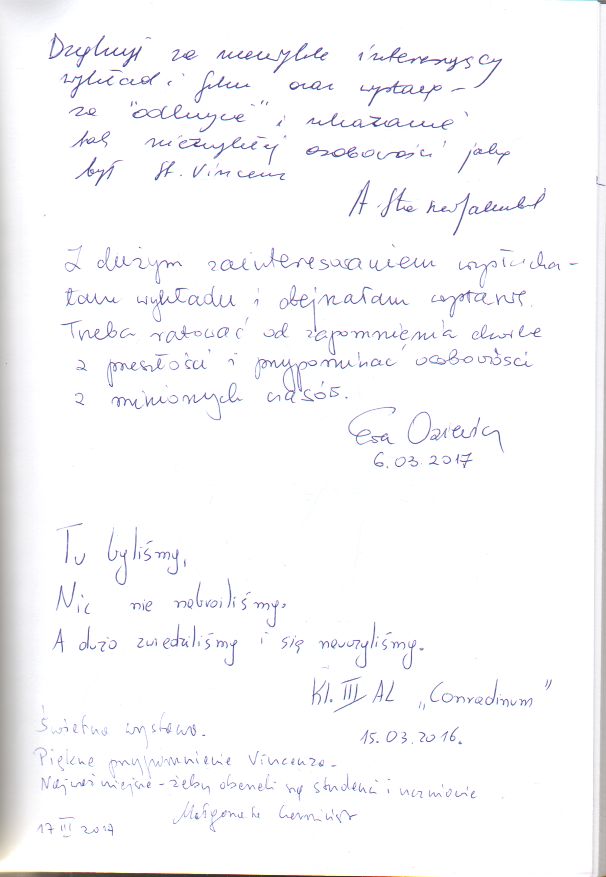 Dziękuję za niezwykle interesujący
wykład i film oraz wystawę –
za "odkrycie" i ukazanie
tak niezwykłej osobowości jaką
był St. Vincenz
A. Sta
Z dużym zainteresowaniem wysłucha-
łam wykładu i obejrzałam wystawę.
Trzeba ratować od zapomnienia chwile
z przeszłości i przypominać osobowości
z minionych czasów.
Ewa
6.03.2017
Tu byliśmy,
Nic nie nabroiliśmy.
A dużo zwiedziliśmy i się nauczyliśmy.
Kl. III AL „Conradinum"
15.03.2016.
Świetna wystawa.
Piękne przypomnienie Vincenza.
Najważniejsze – żeby obejrzeli ją studenci i uczniowie
Małgorzata Czermińska
17 III 2017